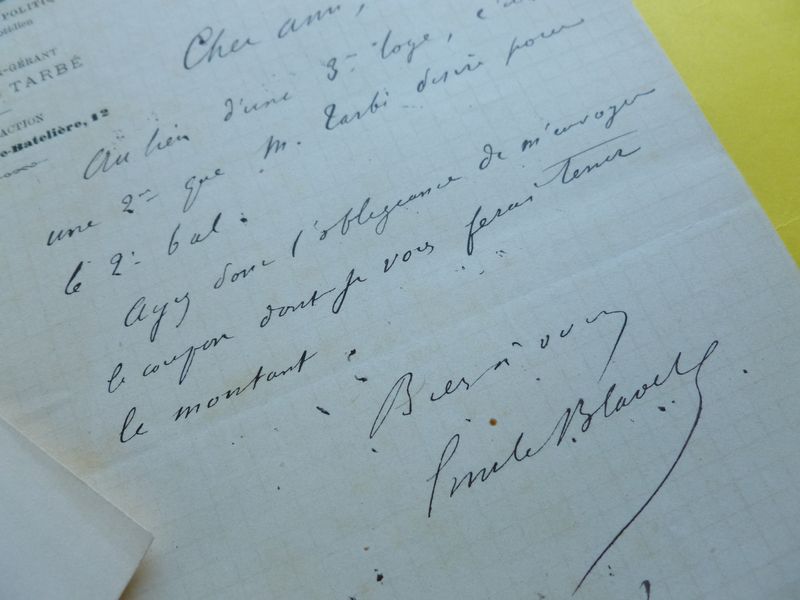 POLITIQ
otidien
-GÉRANT
TARBÉ
ACTION
e-Batelière, 12
Cher ami,
Au lieu d'une 3me loge, c'est
une 2me que M. Tarbé desire pour
le 2e bal.
Ayez donc l'obligeance de m'envoyer
le coupon dont je vous ferai tenir
le montant.
Bien à vous
Emile Blavet